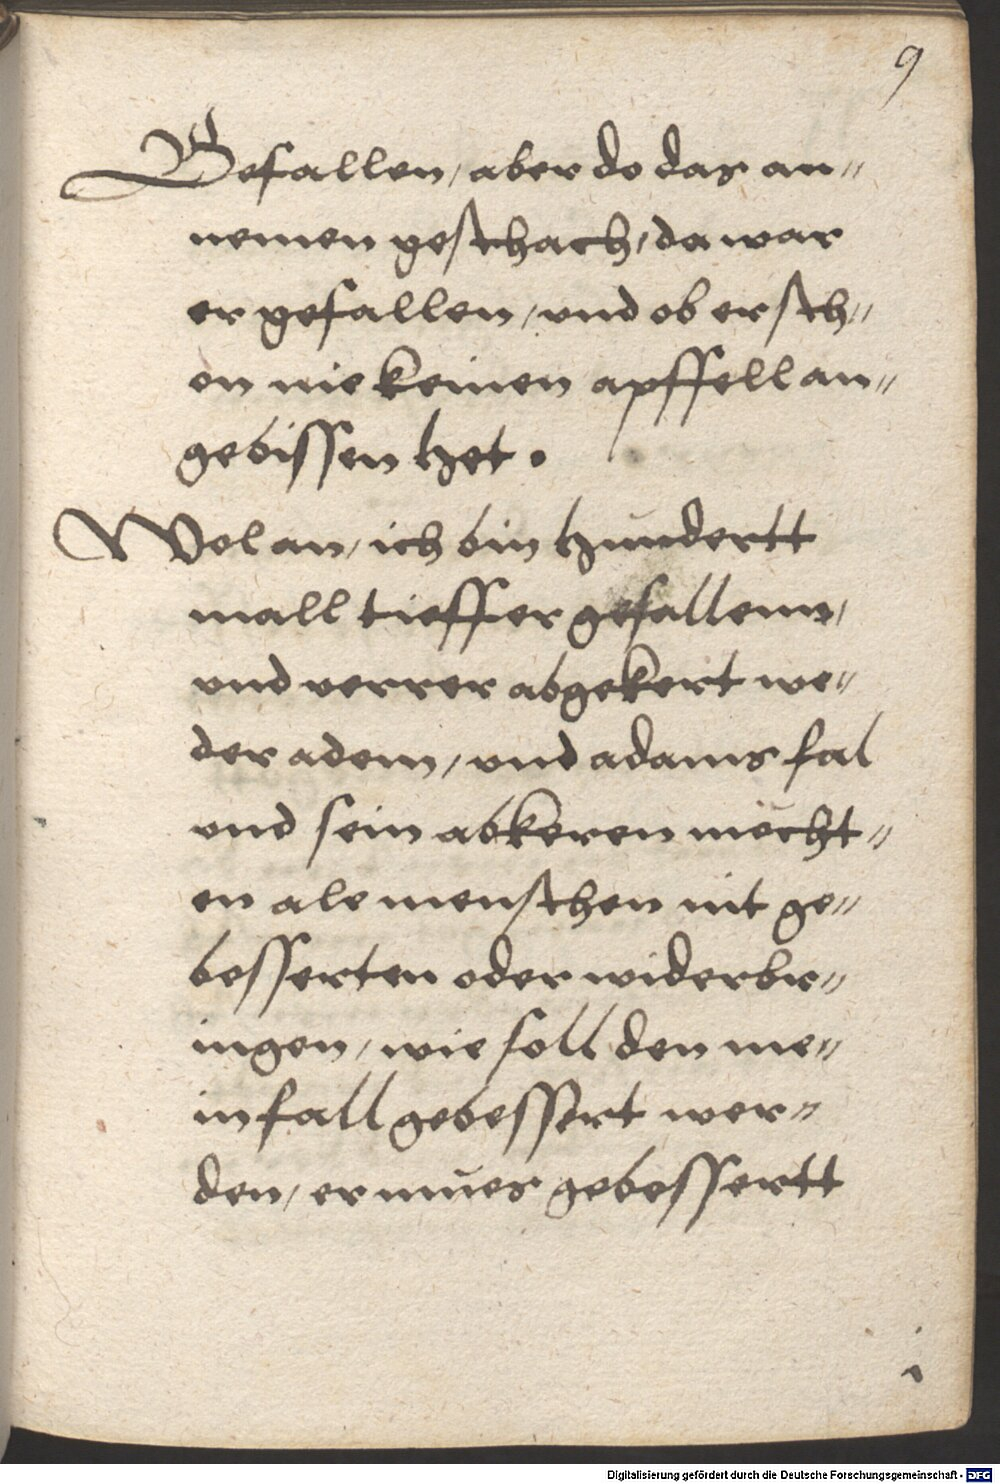 9
Gefallen, aber do das an⸗
nemen geschach, da war
er gefallen, vnd ob er sch⸗
on nie keinen apffell an⸗
gebissen het.
Wol an, ich bin hundertt
mall tieffer gefallenn,
vnd verrer abgekert we⸗
der adem, vnd adams fal
vnd sein abkeren möcht⸗
en ale menschen nit ge⸗
besserten oder widerbr⸗
ingen, wie soll den me⸗
in fall gebessert wer⸗
den, er mues gebessertt
Digitalisierung gefördert durch die Deutsche Forschungsgemeinschaft - DFG